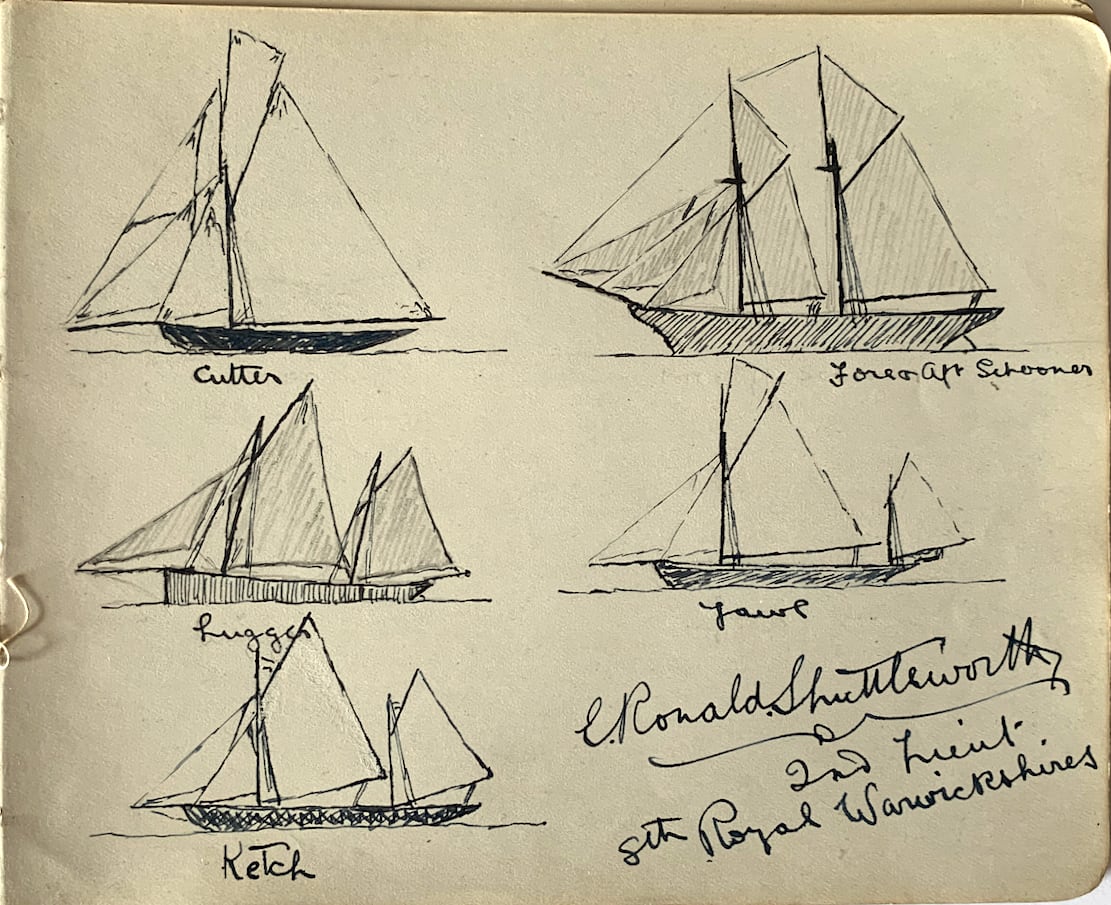 Cutter
Fore & Aft Schooner
Lugger
Yawl
Ketch
C. Ronald. Shuttleworth
2nd Lieut.
8th Royal Warwickshires